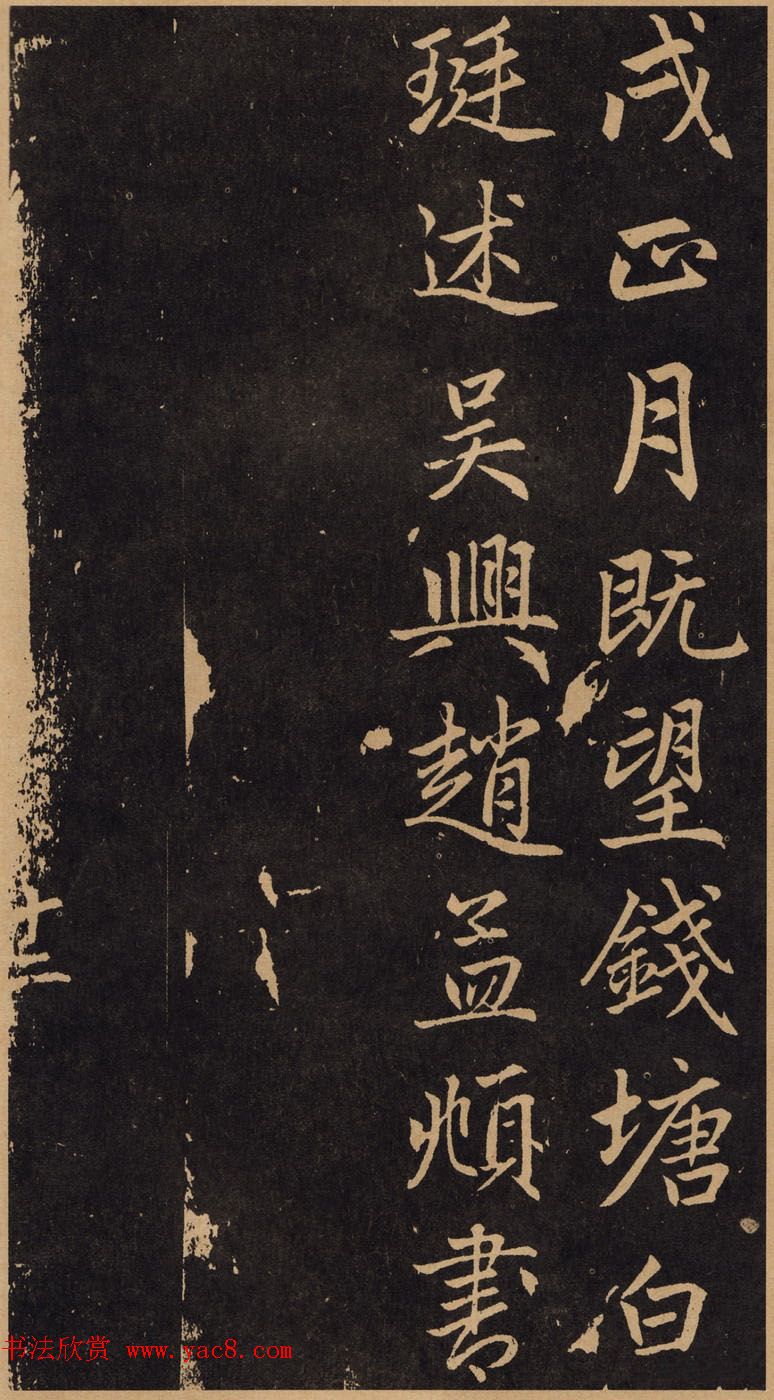 戌正月既望錢塘白
珽述吳興趙孟頫書
十二
书法欣赏 www.yac8.com